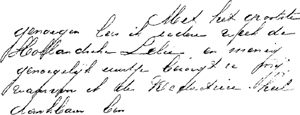 Met het grootste
genoegen lees ik iedere week de
Hollandsche Lelie en menig
genoegelijk uurtje bezorgt ze mij
waarvoor ik de Redactrice heel
dankbaar ben